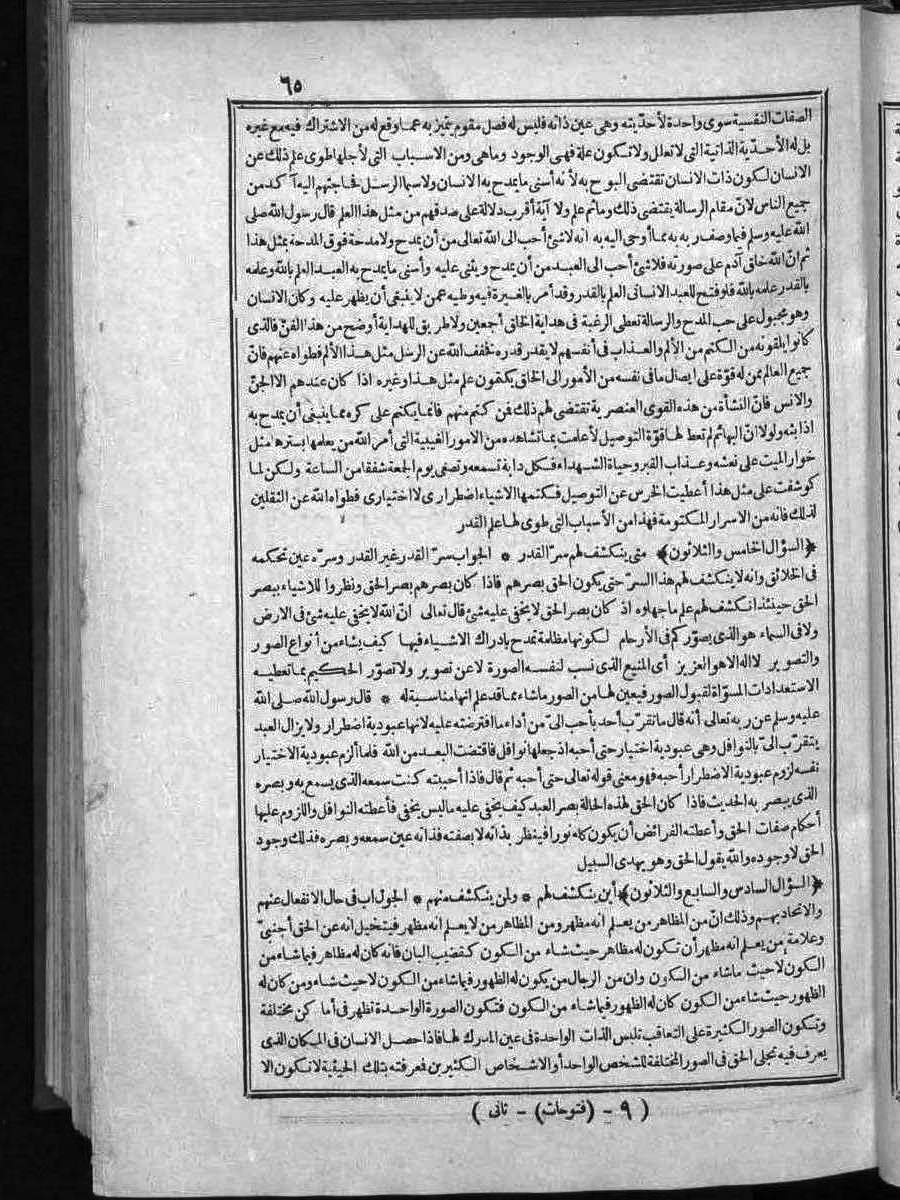 ٦٥
الصفات النفسية سوى واحدة لأحديته وهى عين ذاته فليس له فصل مقوم يتميز به عما وقع له من الاشتراك فيه مع غيره
بل له الأحدية الذاتية التى لا تعلل ولا تكون علة فهى الوجود وما هى ومن الاسباب التى لأجلها طوى علم ذلك عن
الانسان لكون ذات الانسان تقتضى البوح به لأنه أسنى ما يمدح به الانسان ولا سيما الرسل فحاجتهم اليه آكد من
جميع الناس لانّ مقام الرسالة يقتضى ذلك وما ثم علم ولا آية أقرب دلالة على صدقهم من مثل هذا العلم قال رسول الله صلى
الله عليه وسلم فيما وصف ربه به مما أوحى اليه به انه لا شئ أحب الى الله تعالى من أن يمدح ولا مدحة فوق المدحة بمثل هذا
ثم انّ الله خلق آدم على صورته فلا شئ أحب الى العبد من أن يمدح ويثنى عليه وأسنى ما يمدح به العبد العلم بالله وعلمه
بالقدر علمه بالله فلو فتح للعبد الانسانى العلم بالقدر وقد أمر بالغيرة فيه وطيه عمن لا ينبغى أن يظهر عليه وكان الانسان
وهو مجبول على حب المدح والرسالة تعطى الرغبة فى هداية الخلق أجمعين ولا طريق للهداية أوضح من هذا الفنّ فالذى
كانوا يلقونه من الكتم من الألم والعذاب فى أنفسهم لا يقدر قدره فخفف الله عن الرسل مثل هذا الألم فطواه عنهم فانّ
جميع العالم ممن له قوّة على ايصال ما فى نفسه من الأمور الى الخلق يكتمون علم مثل هذا وغيره اذا كان عندهم الا الجنّ
والانس فانّ النشأة من هذه القوى العنصرية تقتضى لهم ذلك فمن كتم منهم فانما يكتم على كره مما ينبغى أن يمدح به
اذا بثه ولولا انّ البهائم لم تعط لها قوّة التوصيل لأعلمت بما تشاهده من الامور الغيبية التى أمر الله من يعلمها بسترها مثل
خوار الميت على نعشه وعذاب القبر وحياة الشهداء فكل دابة تسمعه وتصغى يوم الجمعة شفقا من الساعة ولكن لما
كوشفت على مثل هذا أعطيت الخرس عن التوصيل فكتمها الاشياء اضطرارى لا اختيارى فطواه الله عن الثقلين
لذلك فانه من الاسرار المكتومة فهذا من الأسباب التى طوى لها علم القدر
﴿السؤال الخامس والثلاثون﴾ متى ينكشف لهم سرّ القدر * الجواب سرّ القدر غير القدر وسرّه عين تحكمه
فى الخلائق وانه لا ينكشف لهم هذا السرّ حتى يكون الحق بصرهم فاذا كان بصرهم بصر الحق ونظروا للاشياء ببصر
الحق حينئذ انكشف لهم علم ما جهلوه اذ كان بصر الحق لا يخفى عليه شئ قال تعالى انّ الله لا يخفى عليه شئ فى الارض
ولا فى السماء هو الذى يصوّركم فى الأرحام لكونها مظلمة تمدح بادراك الاشياء فيها كيف يشاء من أنواع الصور
والتصوير لا اله الا هو العزيز أى المنيع الذى نسب لنفسه الصورة لا عن تصوير ولا تصوّر الحكيم بما تعطيه
الاستعدادات المسوّاة لقبول الصور فيعين لها من الصور ما شاء مما قد علم انها مناسبة له * قال رسول الله صلى الله
عليه وسلم عن ربه تعالى أنه قال ما تقرّب أحد بأحب الىّ من أداء ما افترضته عليه لانها عبودية اضطرار ولا يزال العبد
يتقرّب الىّ بالنوافل وهى عبودية اختيار حتى أحبه اذ جعلها نوافل فاقتضت البعد من الله فلما ألزم عبودية الاختيار
نفسه لزوم عبودية الاضطرار أحبه فهو معنى قوله تعالى حتى أحبه ثم قال فاذا أحببته كنت سمعه الذى يسمع به وبصره
الذى يبصر به الحديث فاذا كان الحق لهذه الحالة بصر العبد كيف يخفى عليه ما ليس يخفى فأعطته النوافل واللزوم عليها
أحكام صفات الحق وأعطته الفرائض أن يكون كله نورا فينظر بذاته لا بصفته فذاته عين سمعه وبصره فذلك وجود
الحق لا وجوده والله يقول الحق وهو يهدى السبيل
﴿السؤال السادس والسابع والثلاثون﴾ أين ينكشف لهم * ولمن ينكشف منهم * الجواب فى حال الانفعال عنهم
والاتحاد بهم وذلك انّ من المظاهر من يعلم انه مظهر ومن المظاهر من لا يعلم انه مظهر فيتخيل انه عن الحق أجنبىّ
وعلامة من يعلم انه مظهر أن تكون له مظاهر حيث شاء من الكون كقضيب البان فانه كان له مظاهر فيما شاء من
الكون لا حيث ما شاء من الكون وان من الرجال من يكون له الظهور فيما شاء من الكون لا حيث شاء ومن كان له
الظهور حيث شاء من الكون كان له الظهور فيما شاء من الكون فتكون الصورة الواحدة تظهر فى أماكن مختلفة
وتكون الصور الكثيرة على التعاقب تلبس الذات الواحدة فى عين المدرك لها فاذا حصل الانسان فى المكان الذى
يعرف فيه تجلى الحق فى الصور المختلفة للشخص الواحد أو الاشخاص الكثيرين فمعرفته بتلك الحيثية لا تكون الا
( ٩ - (فتوحات) - ثانى )